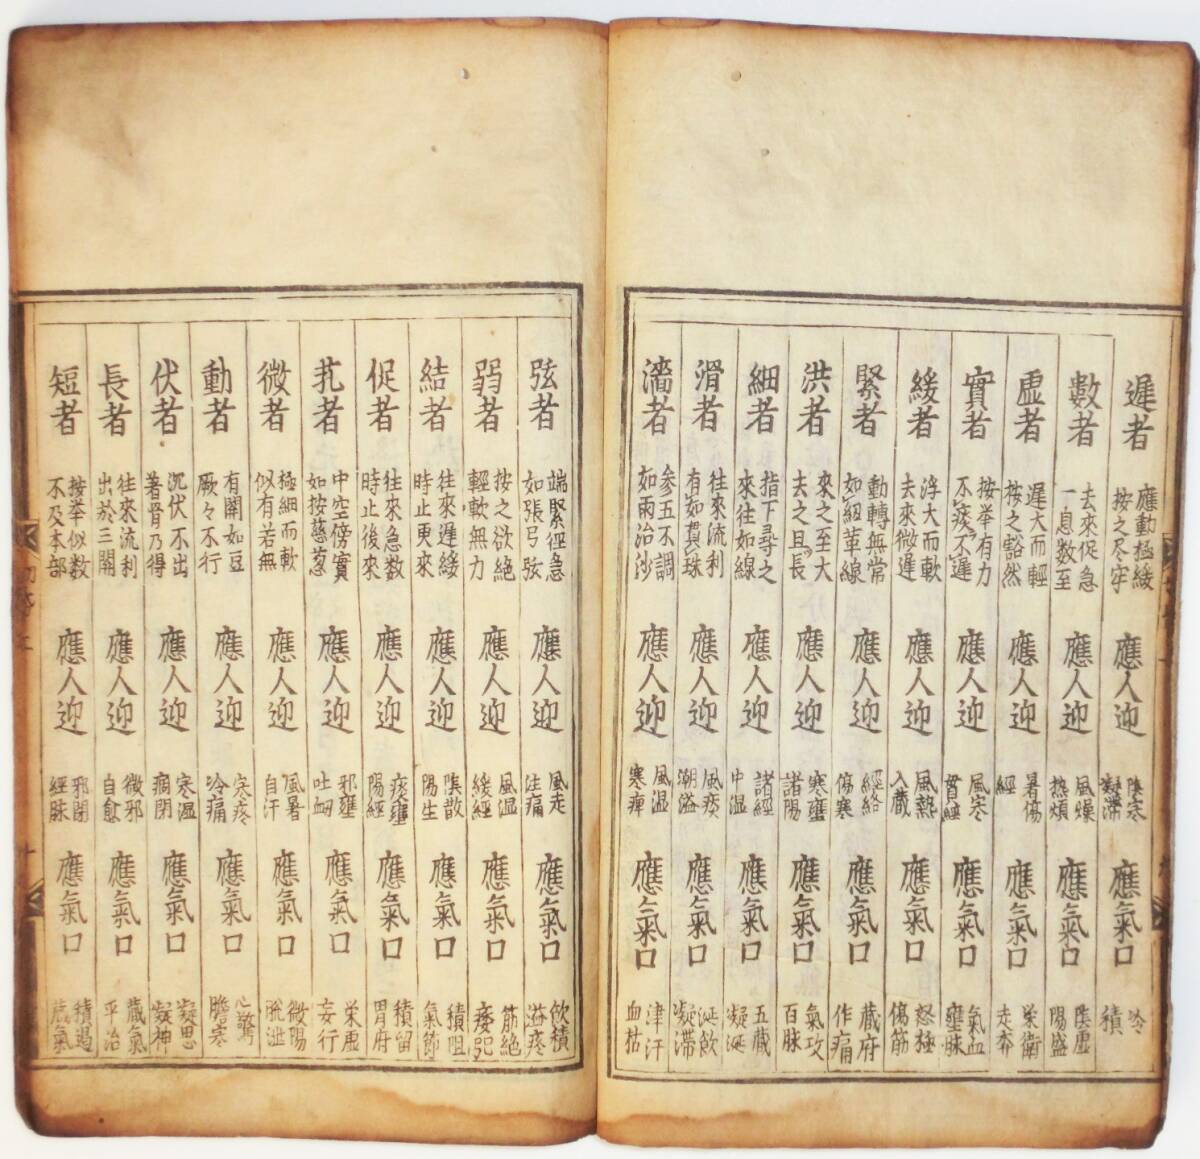 遲者 應動極緩 按之尽牢 應人迎 陰寒 凝滯 應氣口 冷 積
數者 去來促急 一息数至 應人迎 風燥 热煩 應氣口 陰虛 陽盛
虛者 遲大而輕 按之豁然 應人迎 暑傷 經 應氣口 栄衛 走奔
實者 按举有力 不疾不遲 應人迎 風寒 貫經 應氣口 氣血 壅脉
緩者 浮大而軟 去來微遲 應人迎 風熱 入藏 應氣口 怒極 傷筋
緊者 動轉無常 如紐革線 應人迎 經絡 傷寒 應氣口 藏府 作痛
洪者 來之至大 去之且長 應人迎 寒壅 諸陽 應氣口 氣攻 百脉
細者 指下尋之 來往如線 應人迎 諸經 中温 應氣口 五藏 凝涎
滑者 往來流利 有如貫珠 應人迎 風痰 潮溢 應氣口 涎飲 凝滯
濇者 参五不調 如雨沾沙 應人迎 風温 寒痺 應氣口 津汗 血枯
弦者 端緊徑急 如張弓弦 應人迎 風走 注痛 應氣口 飲積 溢疼
弱者 按之欲絶 輕軟無力 應人迎 風温 緩經 應氣口 筋絶 痿
結者 往來遲緩 時止更來 應人迎 陰散 陽生 應氣口 積阻 氣節
促者 往來急数 時止後來 應人迎 痰壅 陽經 應氣口 積留 胃府
芤者 中空傍實 如按慈葱 應人迎 邪壅 吐血 應氣口 栄虛 妄行
微者 極細而軟 似有若無 應人迎 風暑 自汗 應氣口 微陽 脱泄
動者 有關如豆 厥々不行 應人迎 寒疼 冷痛 應氣口 心驚 膽寒
伏者 沉伏不出 著骨乃得 應人迎 寒温 痼閉 應氣口 凝思 凝神
長者 往來流利 出於三關 應人迎 微邪 自愈 應氣口 藏氣 平治
短者 按举似数 不及本部 應人迎 邪閉 經脉 應氣口 積遏 藏氣